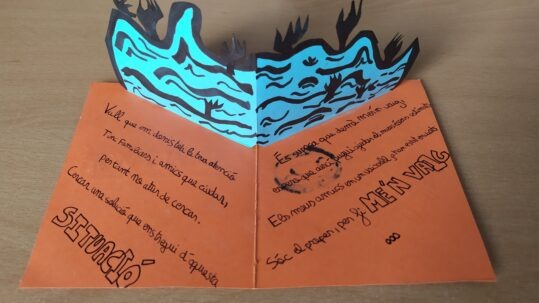 Vull que em donis bé la teva atenció
Tinc famílies i amics que cuidar,
per tant no atur de cercar.
Cercar una solució que ens tregui d'aquesta
SITUACIÓ
És segura que demà me'n vaig
Els meus amics en un vaixell, s'han mullats
Sóc el proper, i per fi ME'N VAIG